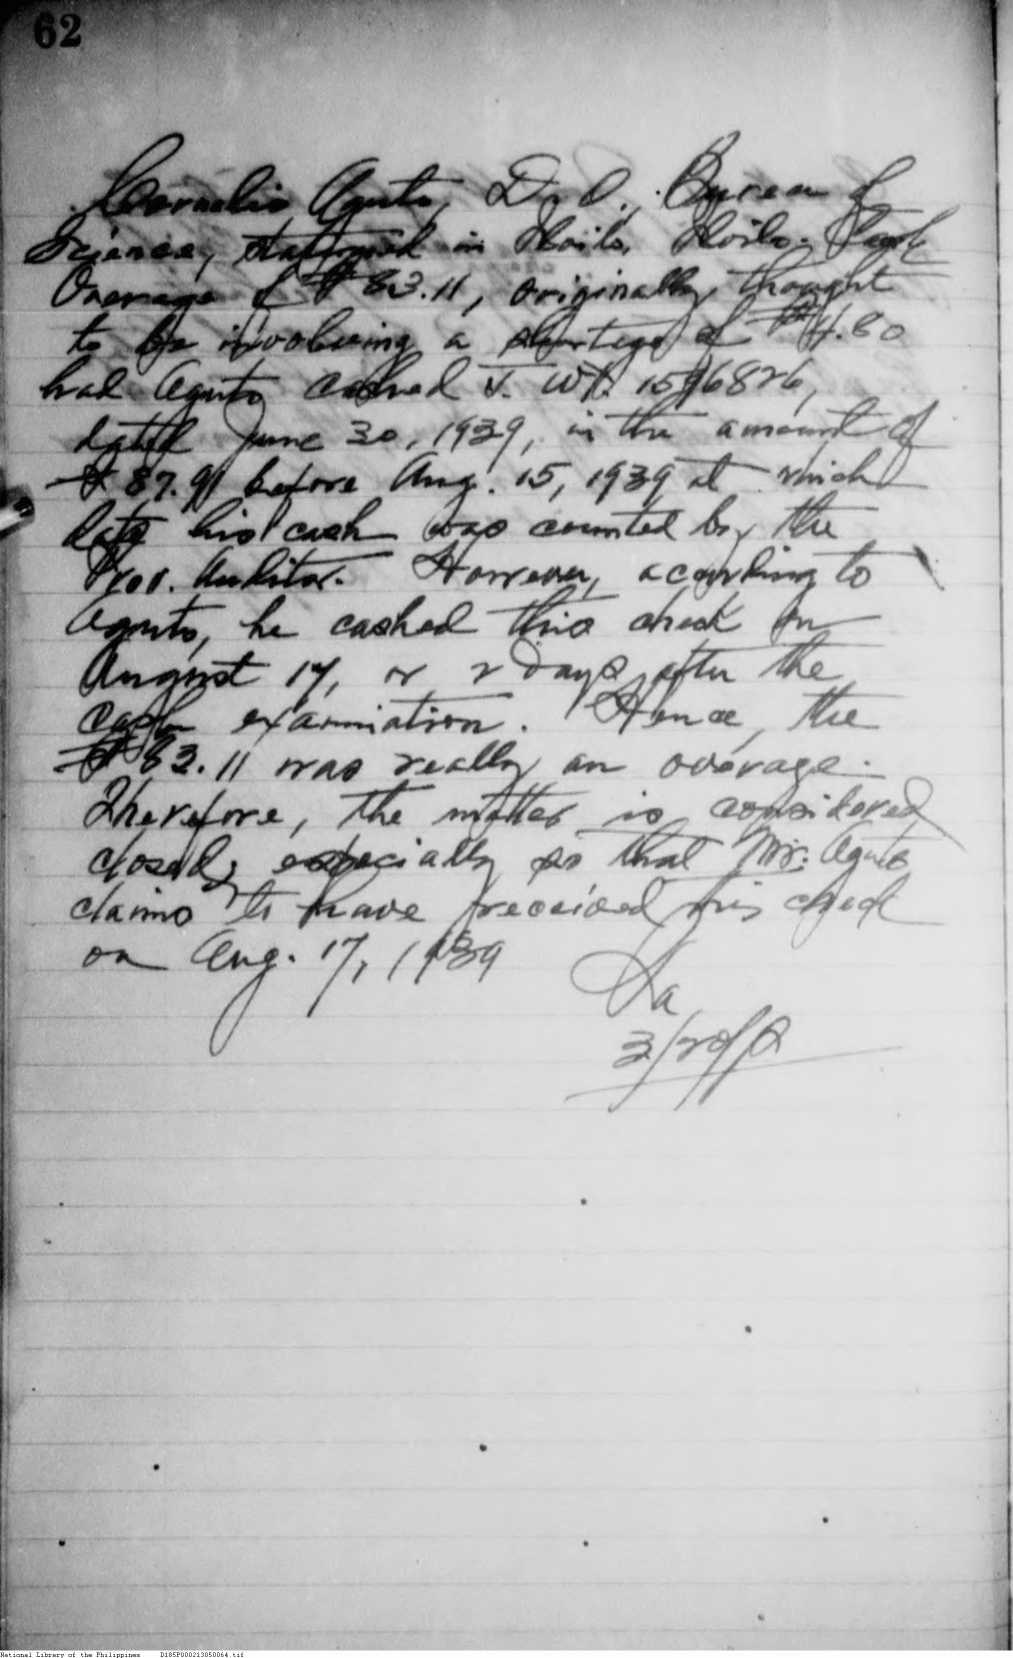 62
Cornelio Agut, D. O., Bureau of
Science, stationed in Iloilo, Iloilo.
Overage of ₱83.11, originally thought
to be involving a shortage of ₱4.80
had Aguto cashed T. Wt. 1596826,
dated June 30, 1939, in the amount of
₱87.91 before Aug. 15, 1939 at which
date his cash was counted by the
Prov. Auditor. However, according to
Aguto, he cashed this check on
August 17, or 2 days after the
cash examination. Hence, the
₱83.11 was really an overage.
Therefore, the matter is considered
closed, especially so that Mr. Aguto
claims to have received his check
on Aug. 17, 1939
3/20/
National Library of the Philippines D185P000213050064.tif